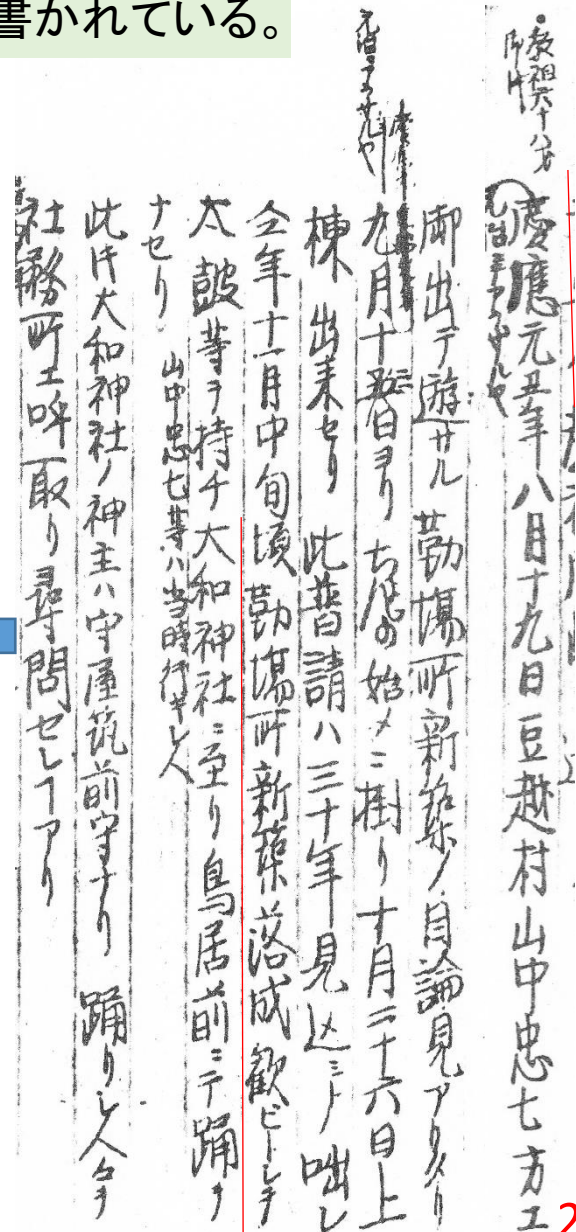 書かれている。
教祖六十八才
御時
慶應元丑年八月十九日豆越村山中忠七方エ
御出テ遊サル 勤場所新築ノ目論見アリタリ
九月十 日ヨリ ちよの始メニ掛り十月二十六日上
棟出来セリ 此普請ハ三十年見込ミト咄し
仝年十一月中旬頃勤場所新築落成歓ビトシテ
太皷等ヲ持チ大和神社ニ至リ鳥居前ニテ踊ヲ
ナセリ 山中忠七等ハ当時行キシ人
此時大和神社ノ神主ハ守屋筑前守ナリ 踊りし人々ヲ
社務所エ呼取り尋問セシ┐アリ
2